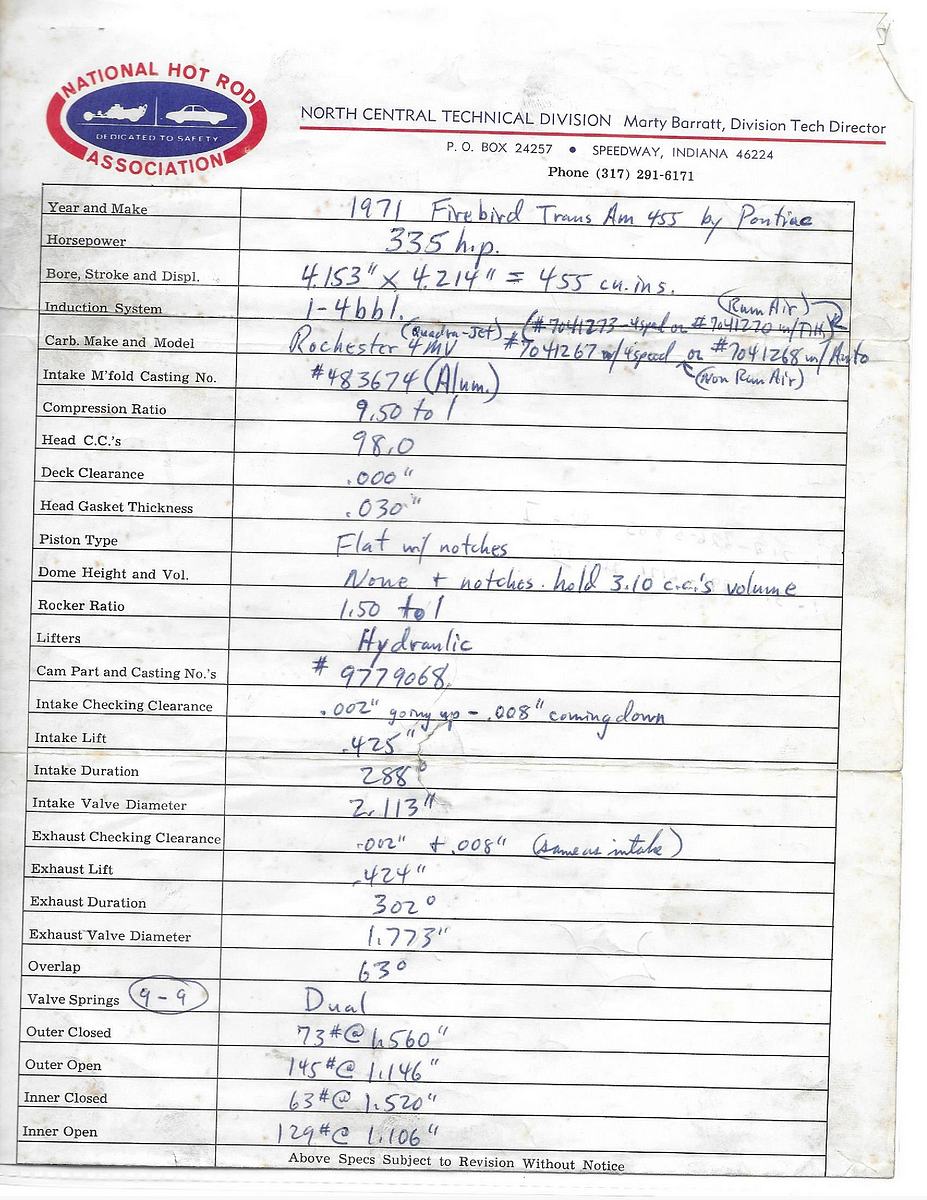 NATIONAL HOT ROD
DEDICATED TO SAFETY
ASSOCIATION
NORTH CENTRAL TECHNICAL DIVISION Marty Barratt, Division Tech Director
P. O. BOX 24257 • SPEEDWAY, INDIANA 46224
Phone (317) 291-6171
Year and Make 1971 Firebird Trans Am 455 by Pontiac
Horsepower 335 h.p.
Bore, Stroke and Displ. 4.153" x 4.214" = 455 cu.ins.
Induction System 1-4bbl. (Ram Air)
(#7041273-4spd or #7041270 w/T.H.)
Carb. Make and Model Rochester (Quadra-Jet) 4MV #7041267 w/4speed or #7041268 w/Auto
(Non Ram Air)
Intake M'fold Casting No. #483674 (Alum.)
Compression Ratio 9.50 to 1
Head C.C.'s 98.0
Deck Clearance .000"
Head Gasket Thickness .030"
Piston Type Flat w/ notches
Dome Height and Vol. None + notches hold 3.10 c.c.'s volume
Rocker Ratio 1.50 to 1
Lifters Hydraulic
Cam Part and Casting No.'s # 9779068
Intake Checking Clearance .002" going up - .008" coming down
Intake Lift .425"
Intake Duration 288°
Intake Valve Diameter 2.113"
Exhaust Checking Clearance .002" + .008" (same as intake)
Exhaust Lift .424"
Exhaust Duration 302°
Exhaust Valve Diameter 1.773"
Overlap 63°
Valve Springs 9-9 Dual
Outer Closed 73#@ 1.560"
Outer Open 145#@ 1.146"
Inner Closed 63#@ 1.520"
Inner Open 129#@ 1.106"
Above Specs Subject to Revision Without Notice